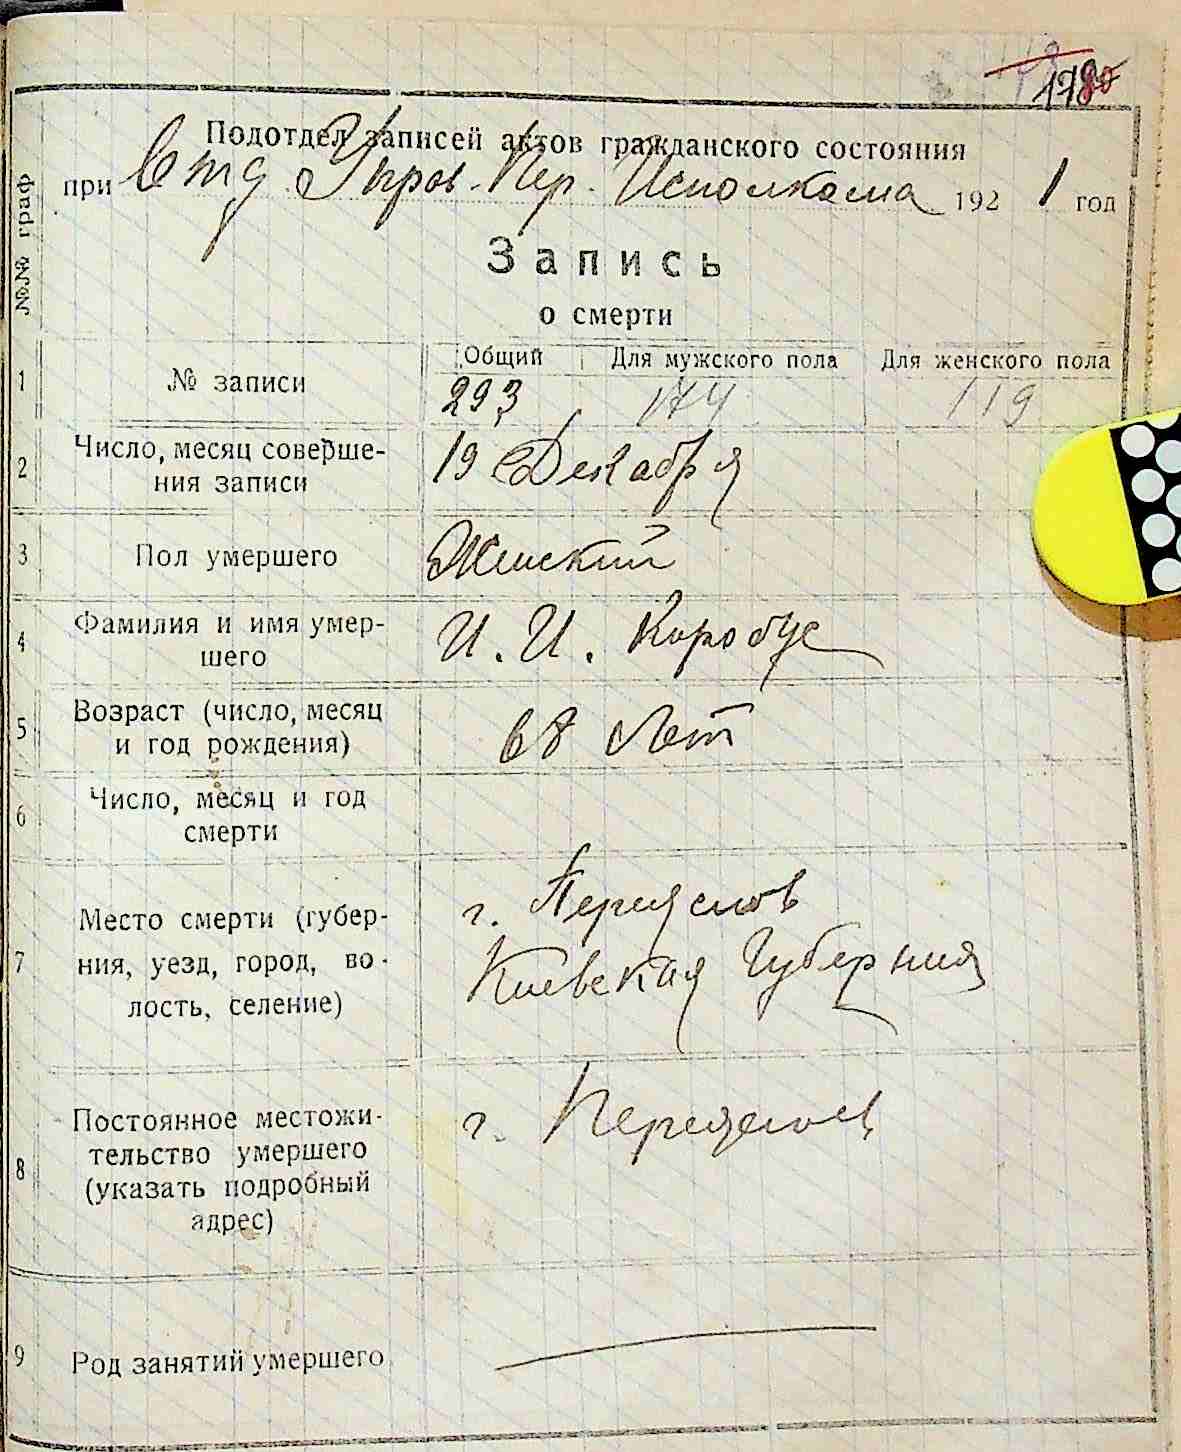 1780
Подотдел записей актов гражданского состояния
при Отд. Управ. Пер. Исполкома 1921 год
№№ граф
Запись
о смерти
Общий Для мужского пола Для женского пола
1 № записи 293 174 119
2 Число, месяц соверше-
ния записи 19 Декабря
3 Пол умершего Женский
4 Фамилия и имя умер-
шего И. И. Коробус
5 Возраст (число, месяц
и год рождения) 68 Лет
6 Число, месяц и год
смерти
7 Место смерти (губер-
ния, уезд, город, во-
лость, селение)
г. Переяслов
Киевская Губерния
8 Постоянное местожи-
тельство умершего
(указать подробный
адрес)
г. Переяслов
9 Род занятий умершего